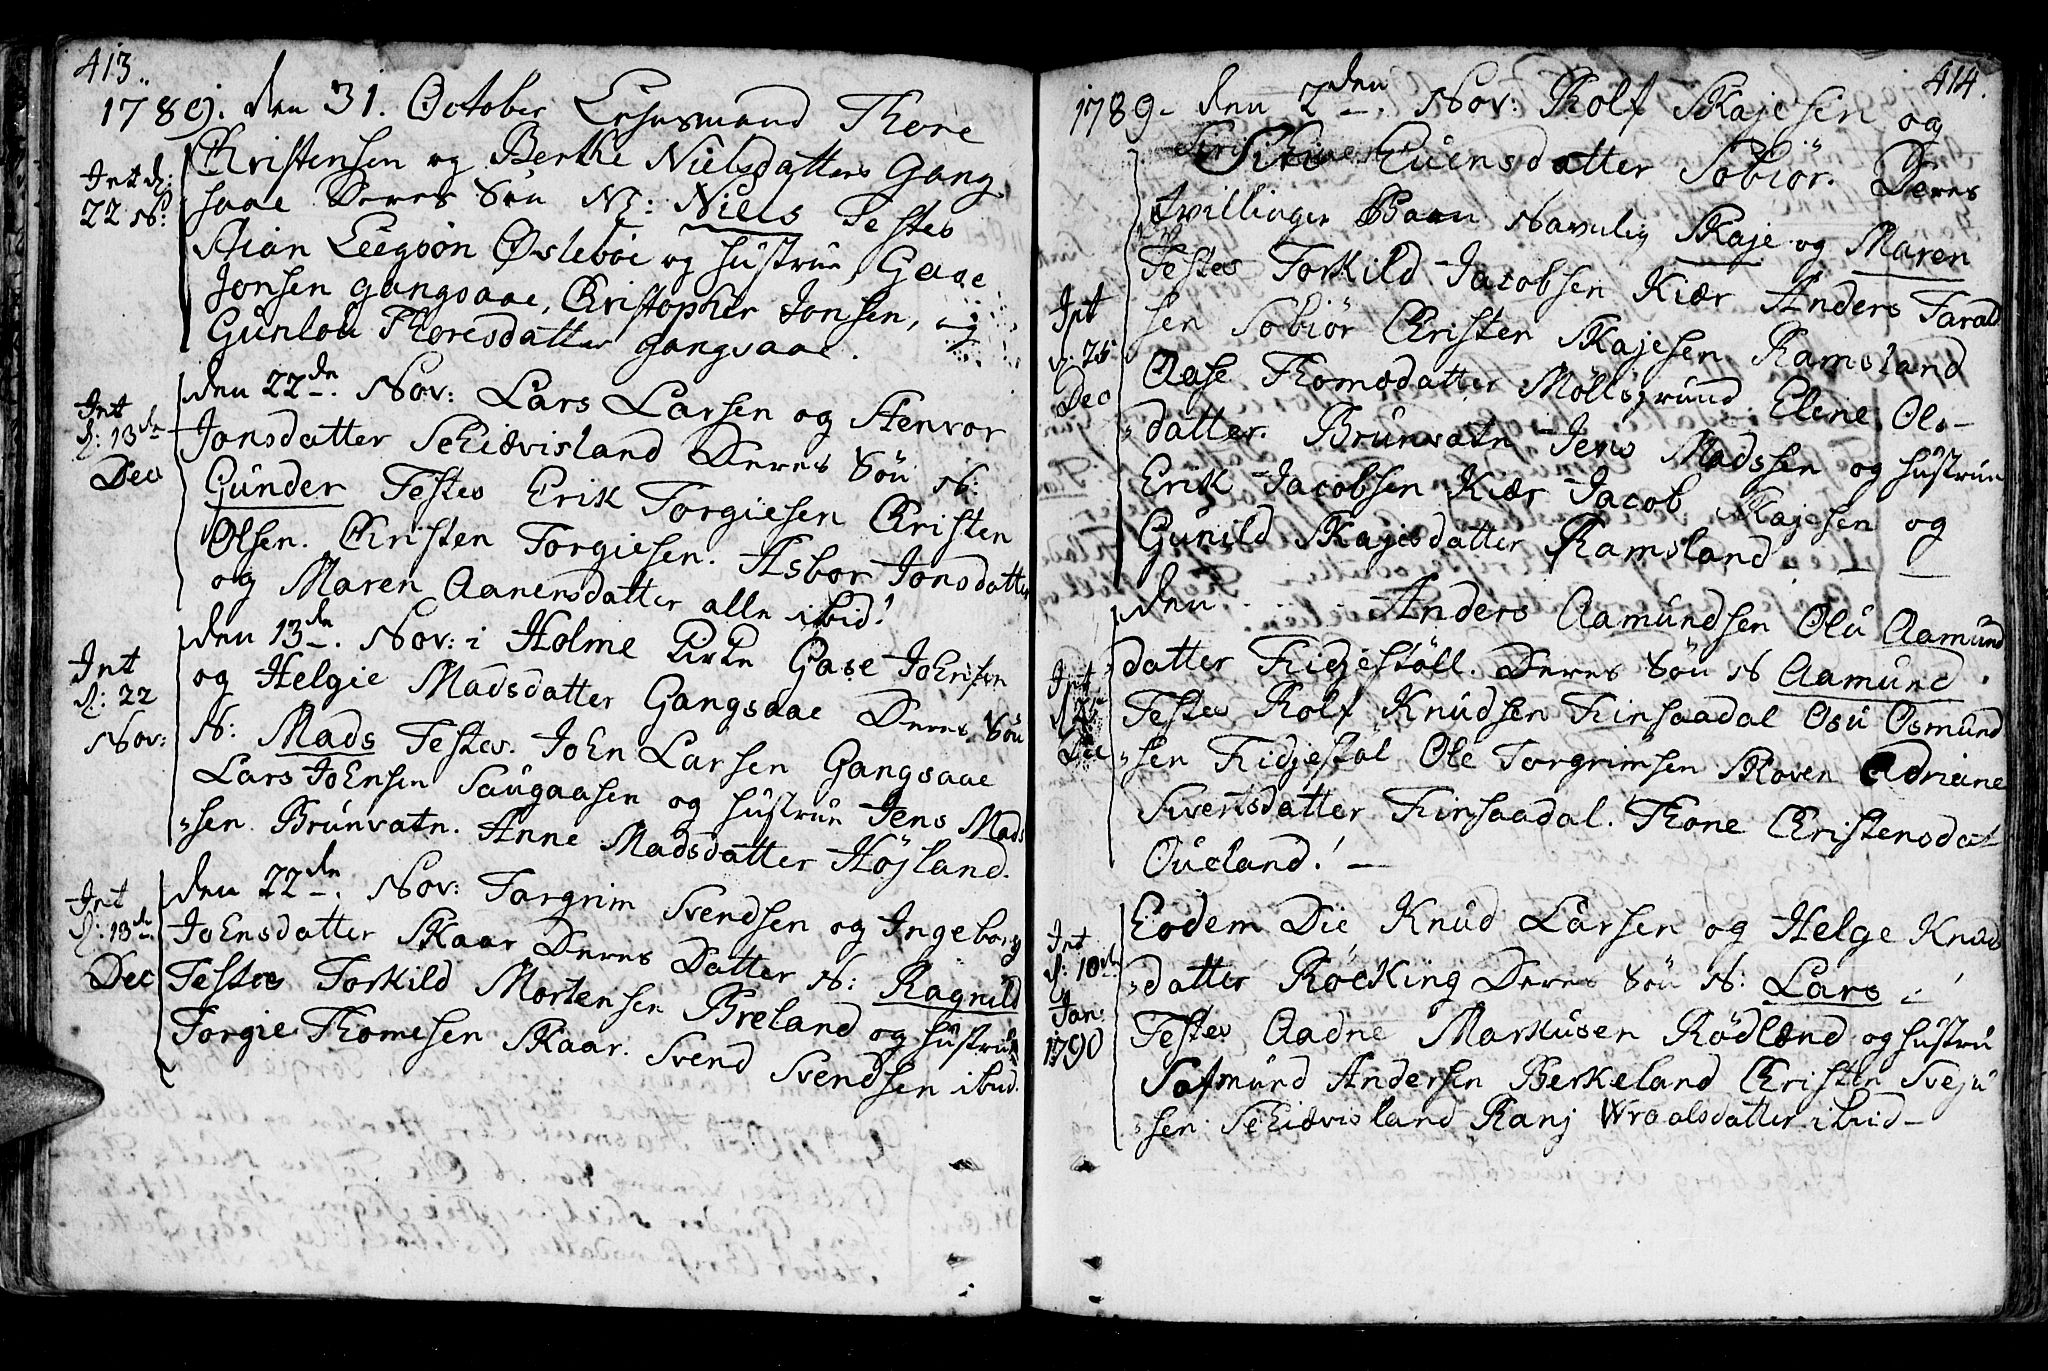 413.
1789. den 31. October Lehnsmand Thore
Christensen og Berthe Nielsdatters Gang
saae Deres Sön N: Niels Testes
Stian Leegsön Øsleböe og Hustrue, Gase
Jonsen gangsaae, Christopher Jonsen, og
Gunlou Thoresdatter gangsaae.
Int d:
22 N:
den 22de. Nov: Lars Larsen og Stenvor
Jonsdatter Schievisland Deres Sön N:
Gunder Testes Erik Torgiesen Christen
Olsen. Christen Torgiesen. Asbor Jonsdatter
og Maren Aanensdatter alle ibid!
Int
d: 13de
Dec
den 13de. Nov: i Holme Kirke Gase Johnsen
og Helgie Madsdatter Gangsaae Deres Sön
N: Mads Testes. John Larsen Gangsaae
Lars Johnsen Saugaasen og Hustrue Jens Mads
"sen Brunvatn. Anne Madsdatter Höjland.
Int
d: 22
Nov:
den 22de. Nov: Targrim Svendsen og Ingeborg
Johnsdatter Skaar Deres Datter N: Ragnild
Testes Torkild Mortensen Breland og Hustrue
Torgie Thomesen Skaar. Svend Svendsen ibid.
Int
d: 13de
Dec
414.
1789. den 2den. Nov: Rolf Skajesen og
Siri Euensdatter Søbiör. Deres
tvillinger Baan Navnlig Skaje og Maren
Testes Torkild Jacobsen Kiær Anders Tarald
sen Sobiör Christen Skajesen Ramsland
Aase Thomsdatter Möllsgrund Elene Ols-
"datter. Brunvatn Jens Madssen og Hustrue
Erik Jacobsen Kiær Jacob Skajesen og
Gunild Skajesdatter Ramsland
Int
d: 25
Dec
den . . . . Anders Aamundsen Olu Aamund
datter Kidjestöll. Deres Sön N Aamund.
Testes Rolf Knudsen Finsaadal Osu Osmund
"sen Kidjestal Ole Torgrimsen Skoven Adriane
Sivertsdatter Finsaadal. Thone Christensdat
Oueland!
Int
d: 25
Dec
Eodem Die Knud Larsen og Helge Knud
"datter Röcking Deres Sön N: Lars
Testes Aadne Markusen Rödland og Hustru
Salmund Andersen Berkeland Christen Svejn
"sen Schievisland Ranj Wraalsdatter ibid-
Int
d: 10de
Jan:
1790